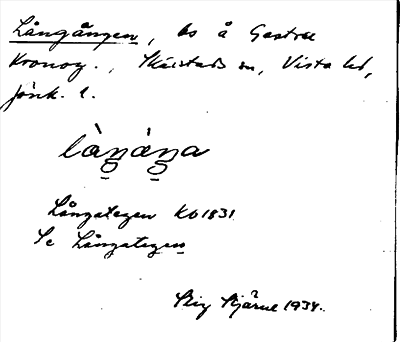 Långången, bs å Gastra
Kronog., Skärstads sn, Vista hd,
Jönk. l.
làŋáŋa
Långategen KB 1831
Se Långategen
Stig Bjärne 1934.